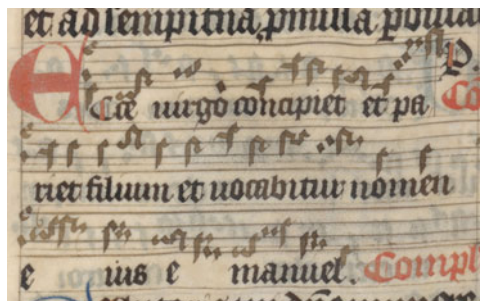 et ad sempitna pmissa
Ecce uirgo concipiet et pa
riet filium et uocabitur nomen
e ius e manuel. Compl